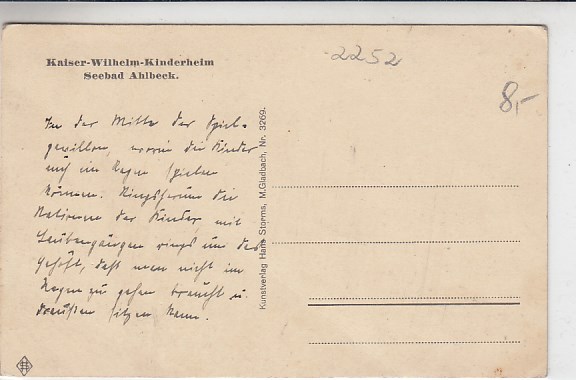 Kaiser-Wilhelm-Kinderheim
Seebad Ahlbeck.
2252
8,-
In der Mitte der Spiel-
worin die Kinder
auch im Regen spielen
können. Ringsherum die
der Kinder mit
Laubengängen rings um das
Gehöft, daß man nicht im
Regen zu gehen braucht u.
draußen sitzen kann.
Kunstverlag Hans Storms, M.Gladbach, Nr. 3269.